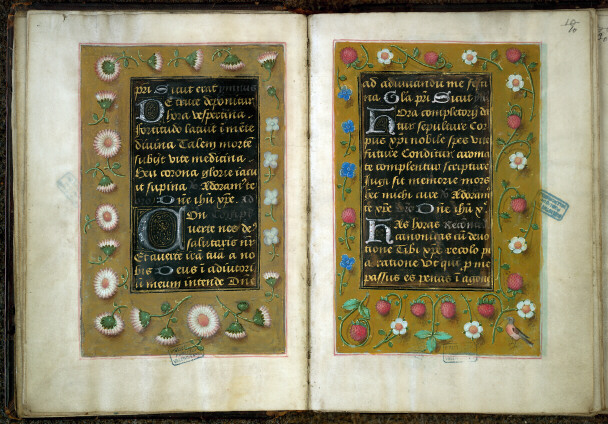 pri Sicut erat
De cruce deponitur
hora vespertina
fortitudo latuit i mēte
divina Talem morte
subyt vite medicina
heu corona glorie iacu
it supina Adoram' te
Dñe ihū xpē
Con
verte nos de'
salutaris nr̄
Et averte irā tuā a no
bis Deus i adiutori
u meum intende Dñe
ad adiuuandū me festi
na Glā pri Sicut
Hora completory da
tur sepulture Cor
pus xpī nobile spes vite
future Conditur aroma
te complentur scripture
Jugi sit memorie mors
hec michi cure Adoram'
te xpē Dñe ihū x'
Has horas
canonicas cū devo
tione Tibi xpē recolo pi
a ratione Ut qui p me
passus es penas i agone